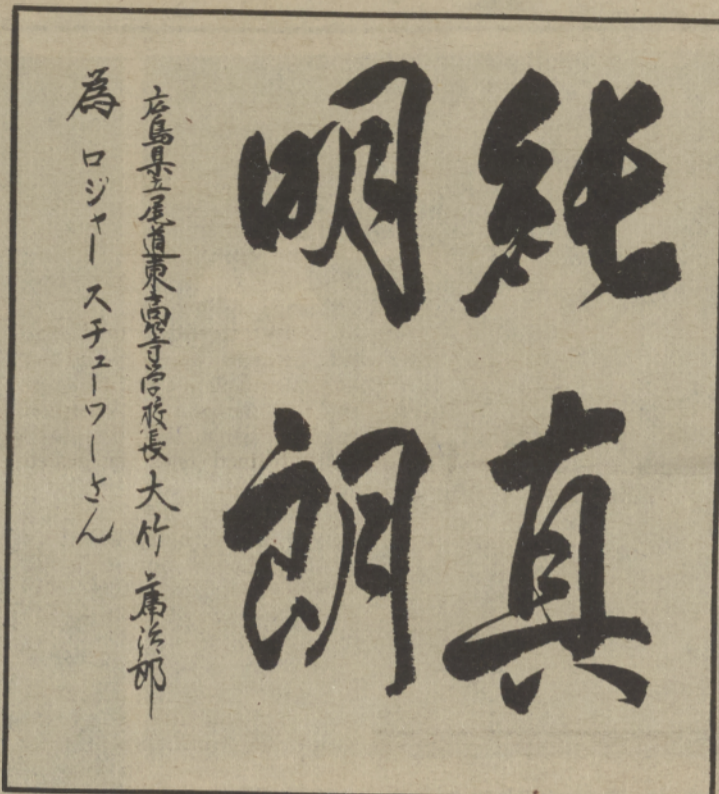 純真
明朗
広島県立尾道東高等学校長 大竹
為 ロジャー スチューワーさん